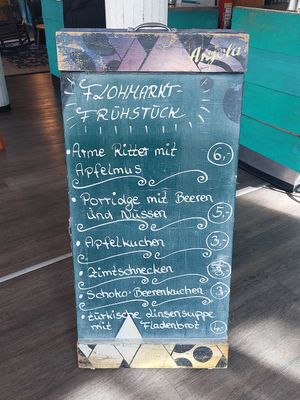 Angela
FLOHMARKT-
FRÜHSTÜCK
• Arme Ritter mit 6,-
Apfelmus
• Porridge mit Beeren
und Nüssen 5,-
• Apfelkuchen 3,-
• Zimtschnecken
• Schoko-Beerenkuchen 3,-
• türkische Linsensuppe
mit Fladenbrot 4,-